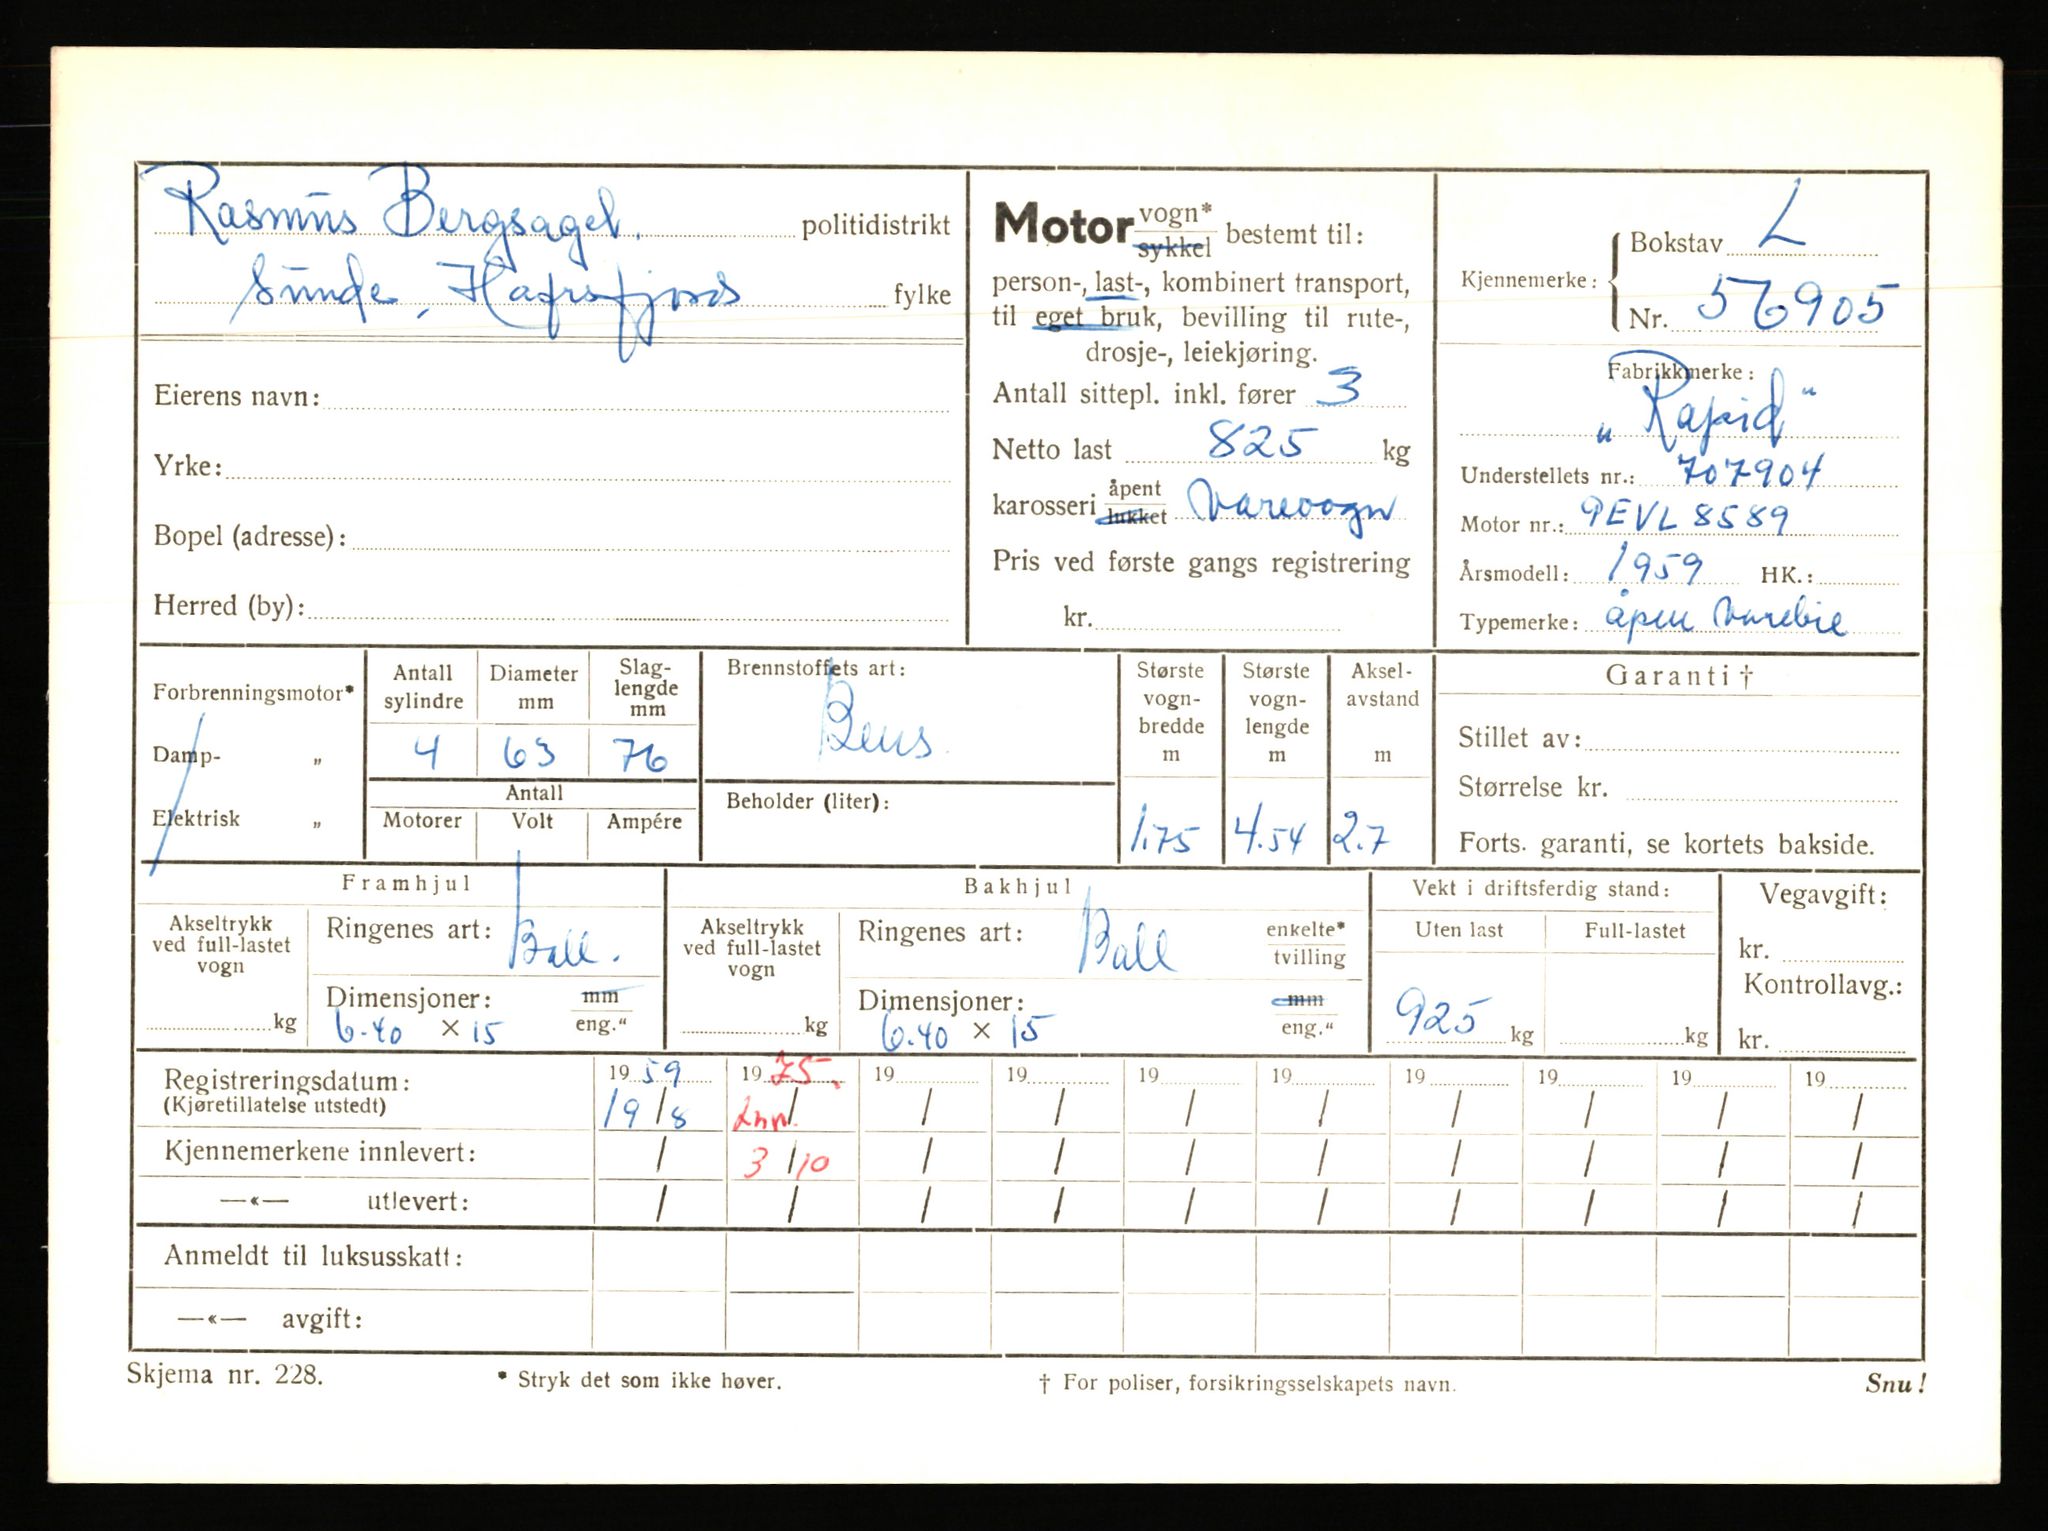 Rasmus Bergsagel. politidistrikt
Sunde, Hafrsfjord fylke
Eierens navn:
Yrke:
Bopel (adresse):
Herred (by):
Motor vogn* sykkel bestemt til:
person-, last-, kombinert transport,
til eget bruk, bevilling til rute-,
drosje-, leiekjøring.
Antall sittepl. inkl. fører 3
Netto last 825 kg
karosseri åpent lukket varevogn
Pris ved første gangs registrering
kr.
Kjennemerke: Bokstav L
Nr. 56905
Fabrikkmerke:
„Rapid"
Understellets nr.: 707904
Motor nr.: 9EVL8589
Årsmodell: 1959 HK.:
Typemerke: åpen varebil
Forbrenningsmotor*
Damp- „
Elektrisk „
Antall sylindre 4
Diameter mm 63
Slag-lengde mm 76
Antall
Motorer Volt Ampére
Brennstoffets art:
Bens.
Beholder (liter):
Største vogn-bredde m 1.75
Største vogn-lengde m 4.54
Aksel-avstand m 2.7
Garanti †
Stillet av:
Størrelse kr.
Forts. garanti, se kortets bakside.
Framhjul
Akseltrykk ved full-lastet vogn
kg
Ringenes art: Ball.
Dimensjoner: mm
6.40 × 15 eng."
Bakhjul
Akseltrykk ved full-lastet vogn
kg
Ringenes art: Ball enkelte* tvilling
Dimensjoner: mm
6.40 × 15 eng."
Vekt i driftsferdig stand:
Uten last Full-lastet
925 kg kg
Vegavgift:
kr.
Kontrollavg.:
kr.
Registreringsdatum: 19 59 19 75. 19 19 19 19 19 19 19 19
(Kjøretillatelse utstedt) 19/8 Inn. / / / / / / / / /
Kjennemerkene innlevert: / 3/10 / / / / / / / /
—«— utlevert: / / / / / / / / / /
Anmeldt til luksusskatt:
—«— avgift:
Skjema nr. 228. * Stryk det som ikke høver. † For poliser, forsikringsselskapets navn. Snu!